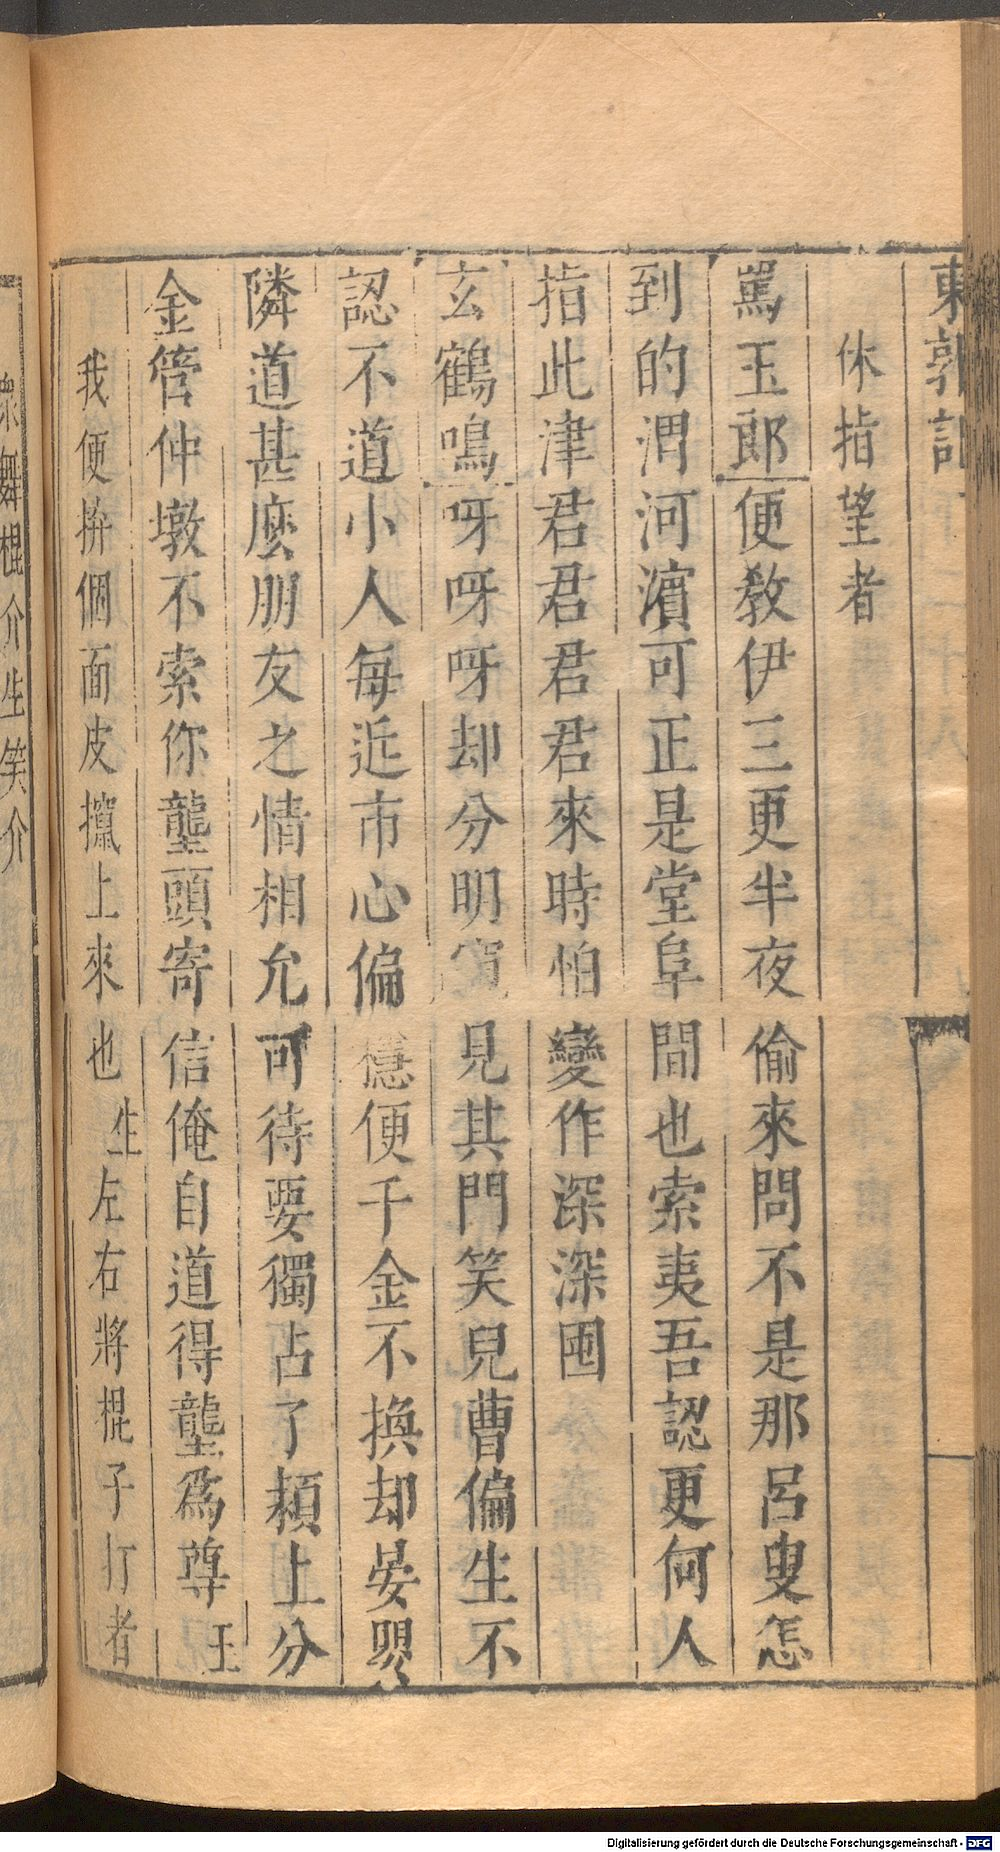 東郭記
休指望者
罵玉郎便教伊三更半夜偷來問不是那呂叟怎
到的渭河濵可正是堂阜間也索夷吾認更何人
指此津君君君君來時怕變作深深囤
玄鶴鳴呀呀呀却分明窺見其門笑兒曹偏生不
認不道小人每近市心偏穩便千金不換却晏嬰
隣道甚麽朋友之情相允可待要獨占了頼上分
金管仲墩不索你壟頭寄信俺自道得壟爲尊 王
我便拚個面皮攛上來也 生左右將棍子打者
衆舞棍介生笑介
Digitalisierung gefördert durch die Deutsche Forschungsgemeinschaft - DFG